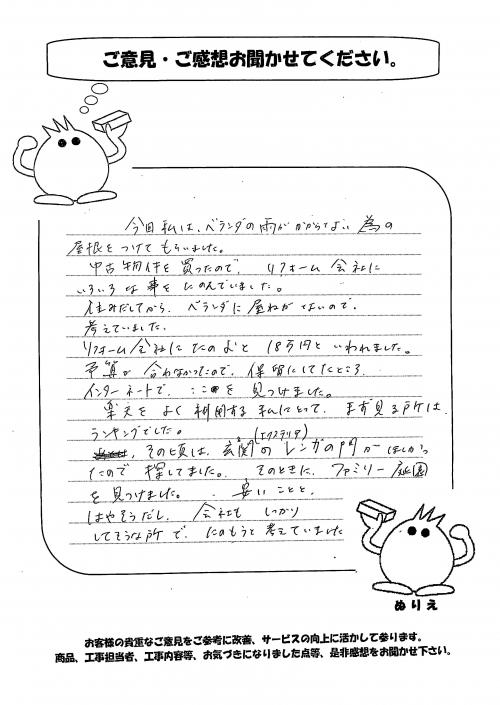 ご意見・ご感想お聞かせてください。
今回私は、ベランダの雨がかからない為の
屋根をつけてもらいました。
中古物件を買ったので、リフォーム会社に
いろいろな事をたのんでいました。
住みだしてから、ベランダに屋ねがないので、
考えていました。
リフォーム会社にたのむと18万円といわれました。
予算が合わなかったので、保留にしてたところ、
インターネートで、ここを見つけました。
楽天をよく利用する私にとって、まず見る所は
ランキングでした。
(エクステリア)
その頃は、玄関のレンガの門がほしかっ
たので探してました。そのときに、ファミリー庭園
を見つけました。安いことと、
はやそうだし、会社もしっかり
してそうな所で、たのもうと考えていました
ぬりえ
お客様の貴重なご意見をご参考に改善、サービスの向上に活かして参ります。
商品、工事担当者、工事内容等、お気づきになりました点等、是非感想をお聞かせ下さい。